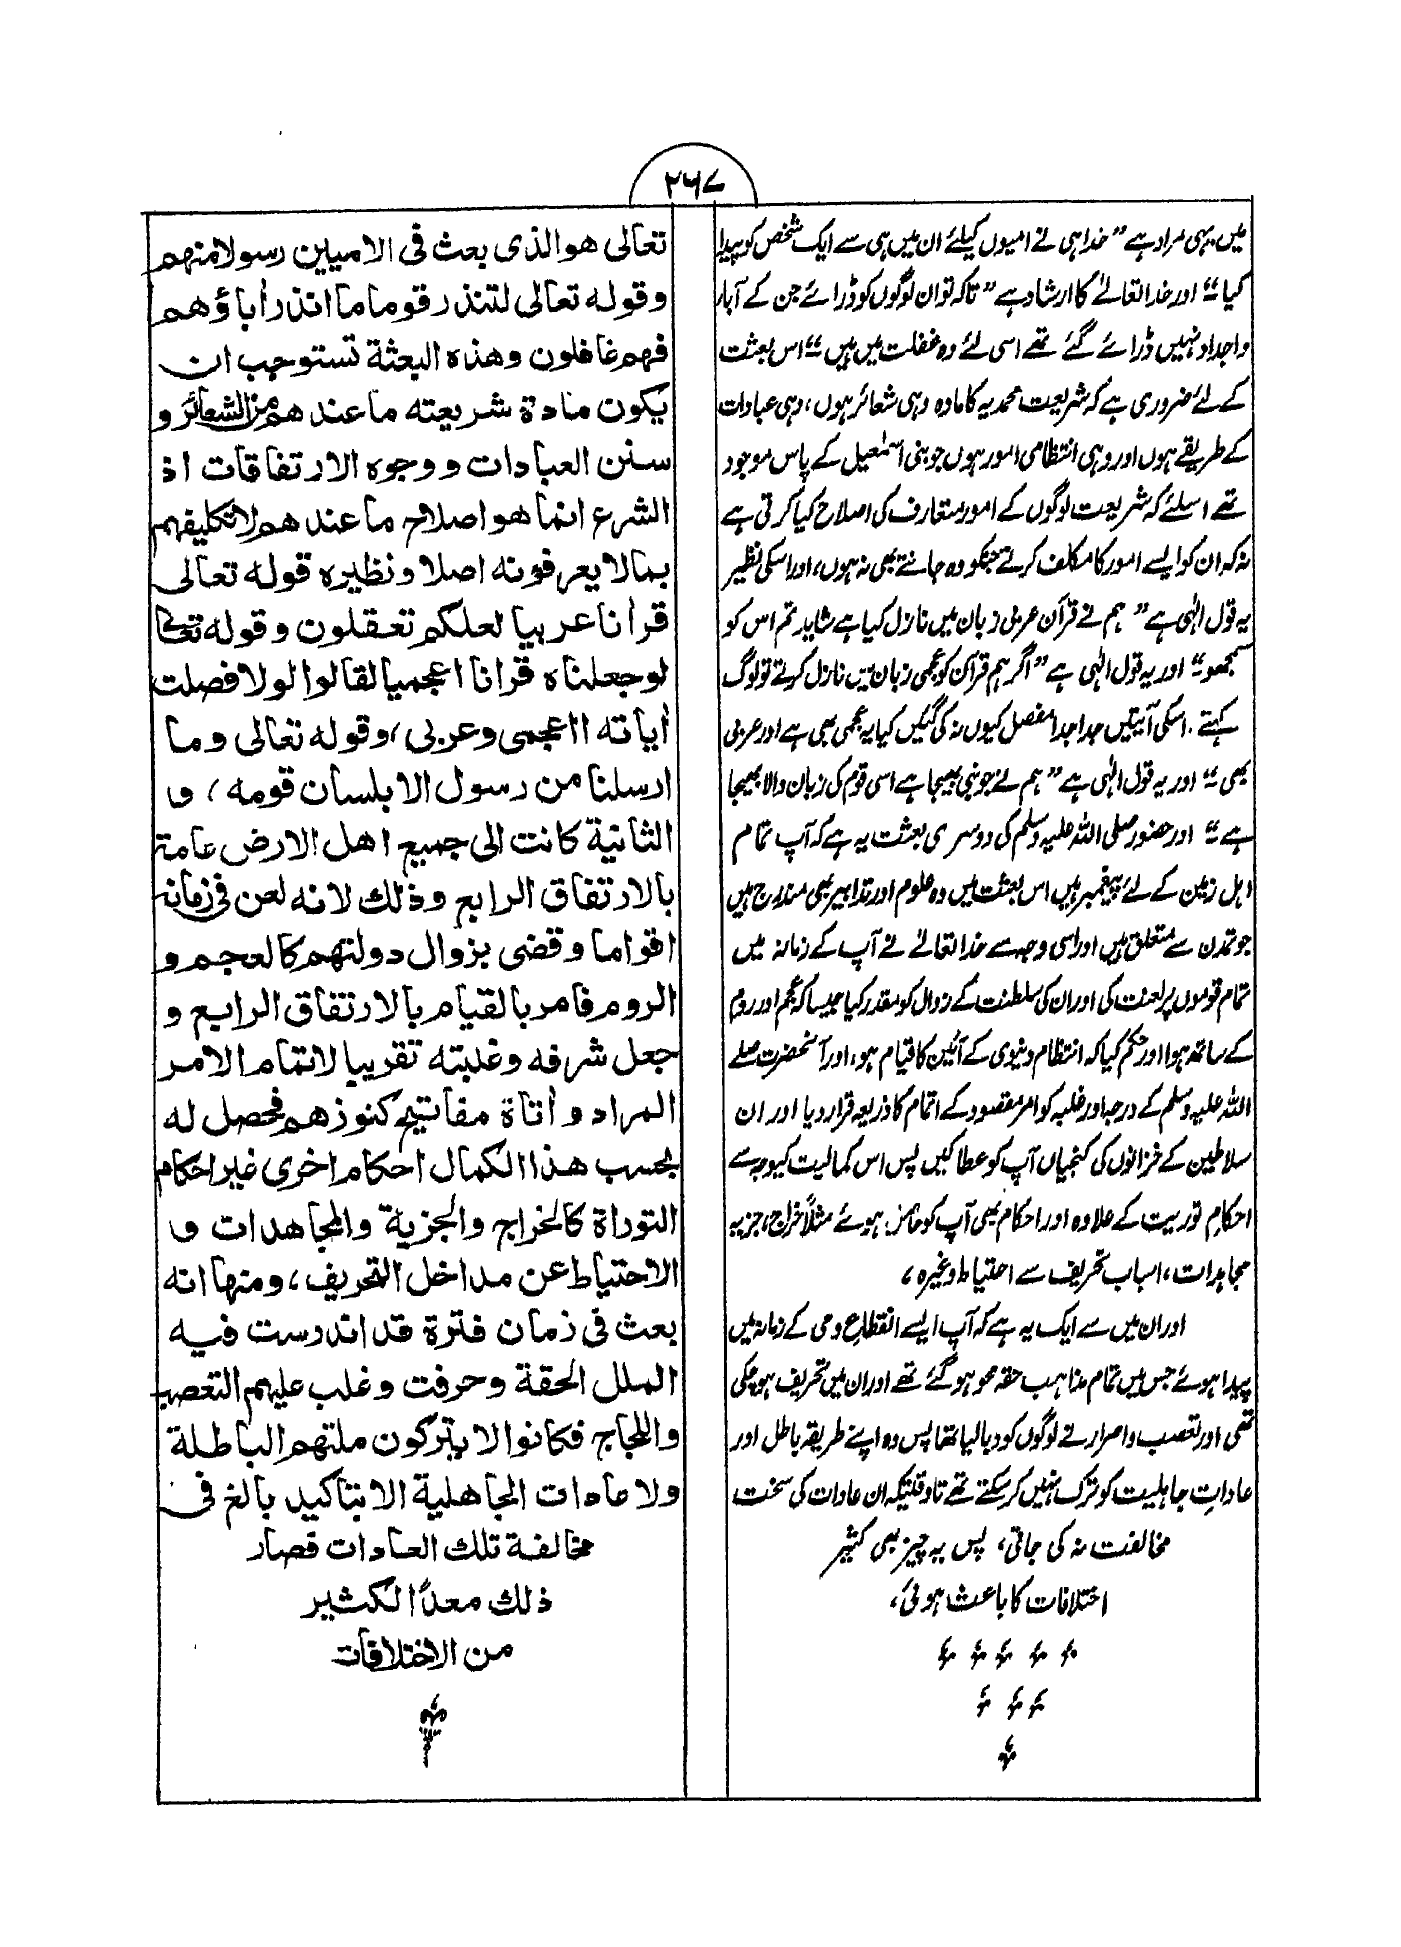 ۲۶۷
میں یہی مراد ہے ”خدا ہی نے امیوں کیلئے ان میں ہی سے ایک شخص کو پیدا
کیا“ اور خدا تعالےٰ کا ارشاد ہے ”تاکہ تو ان لوگوں کو ڈرائے جن کے آباء
و اجداد نہیں ڈرائے گئے تھے اسی لئے وہ غفلت میں ہیں“ اس بعثت
کے لئے ضروری ہے کہ شریعت محمدیہ کا مادہ وہی شعائر ہوں، وہی عبادات
کے طریقے ہوں اور وہی انتظامی امور ہوں جو بنی اسمٰعیل کے پاس موجود
تھے اسلئے کہ شریعت لوگوں کے امور متعارف کی اصلاح کیا کرتی ہے
نہ کہ ان کو ایسے امور کا مکلف کرتے جنکو وہ جانتے بھی نہ ہوں، اور اسکی نظیر
یہ قول الٰہی ہے ”ہم نے قرآن عربی زبان میں نازل کیا ہے شاید تم اس کو
سمجھو“ اور یہ قول الٰہی ہے ”اگر ہم قرآن کو عجمی زبان میں نازل کرتے تو لوگ
کہتے. اسکی آیتیں جدا جدا مفصل کیوں نہ کی گئیں کیا یہ عجمی بھی ہے اور عربی
بھی“ اور یہ قول الٰہی ہے ”ہم نے جو نبی بھیجا ہے اسی قوم کی زبان والا بھیجا
ہے“ اور حضور صلی اللہ علیہ وسلم کی دوسری بعثت یہ ہے کہ آپ تمام
اہل زمین کے لئے پیغمبر ہیں اس بعثت میں وہ علوم اور تدابیر بھی مندرج ہیں
جو تمدن سے متعلق ہیں اور اسی وجہ سے خدا تعالےٰ نے آپ کے زمانہ میں
تمام قوموں پر لعنت کی اور ان کی سلطنت کے زوال کو مقدر کیا جیسا کہ عجم اور روم
کے ساتھ ہوا اور حکم کیا کہ انتظام دنیوی کے آئین کا قیام ہو، اور آنحضرت صلے
اللہ علیہ وسلم کے درجہ اور غلبہ کو امر مقصود کے اتمام کا ذریعہ قرار دیا اور ان
سلاطین کے خزانوں کی کنجیاں آپ کو عطا کیں پس اس کمالیت کیوجہ سے
احکام توریت کے علاوہ اور احکام بھی آپ کو حاصل ہوئے مثلاً خراج، جزیہ
مجاہدات، اسباب تحریف سے احتیاط وغیرہ،
اور ان میں سے ایک یہ ہے کہ آپ ایسے انقطاع وحی کے زمانہ میں
پیدا ہوئے جس میں تمام مذاہب حقہ محو ہوگئے تھے اور ان میں تحریف ہوچکی
تھی اور تعصب و اصرار نے لوگوں کو دبا لیا تھا پس وہ اپنے طریقہ باطل اور
عادات جاہلیت کو ترک نہیں کر سکتے تھے تا وقتیکہ ان عادات کی سخت
مخالفت نہ کی جاتی، پس یہ چیز بھی کثیر
اختلافات کا باعث ہوئی،
تعالى هو الذى بعث فى الاميين رسولا منهم
وقوله تعالى لتنذر قوما ما انذر أباؤهم
فهم غافلون وهذه البعثة تستوجب ان
يكون مادة شريعته ما عندهم من الشعائر و
سنن العبادات ووجوه الارتفاقات اذ
الشرع انما هو اصلاح ما عندهم لا تكليفهم
بما لا يعرفونه اصلا ونظيره قوله تعالى
قرأنا عربيا لعلكم تعقلون وقوله تعالى
لو جعلناه قرانا اعجميا لقالوا لولا فصلت
أياته ااعجمى وعربى، وقوله تعالى وما
ارسلنا من رسول الا بلسان قومه، و
الثانية كانت الى جميع اهل الارض عامة
بالارتفاق الرابع وذلك لانه لعن فى زمانه
اقواما وقضى بزوال دولتهم كالعجم و
الروم فامر بالقيام بالارتفاق الرابع و
جعل شرفه وغلبته تقريبا لاتمام الامر
المراد وأتاة مفاتيح كنوزهم فحصل له
بحسب هذا الكمال احكام اخرى غير احكام
التوراة كالخراج والجزية والمجاهدات و
الاحتياط عن مداخل التحريف، ومنها انه
بعث فى زمان فترة قد اندرست فيه
الملل الحقة وحرفت وغلب عليهم التعصب
واللجاج فكانوا لا يتركون ملتهم الباطلة
ولا عادات الجاهلية الا بتاكيد بالغ فى
مخالفة تلك العادات فصار
ذلك معدًا لكثير
من الاختلافات